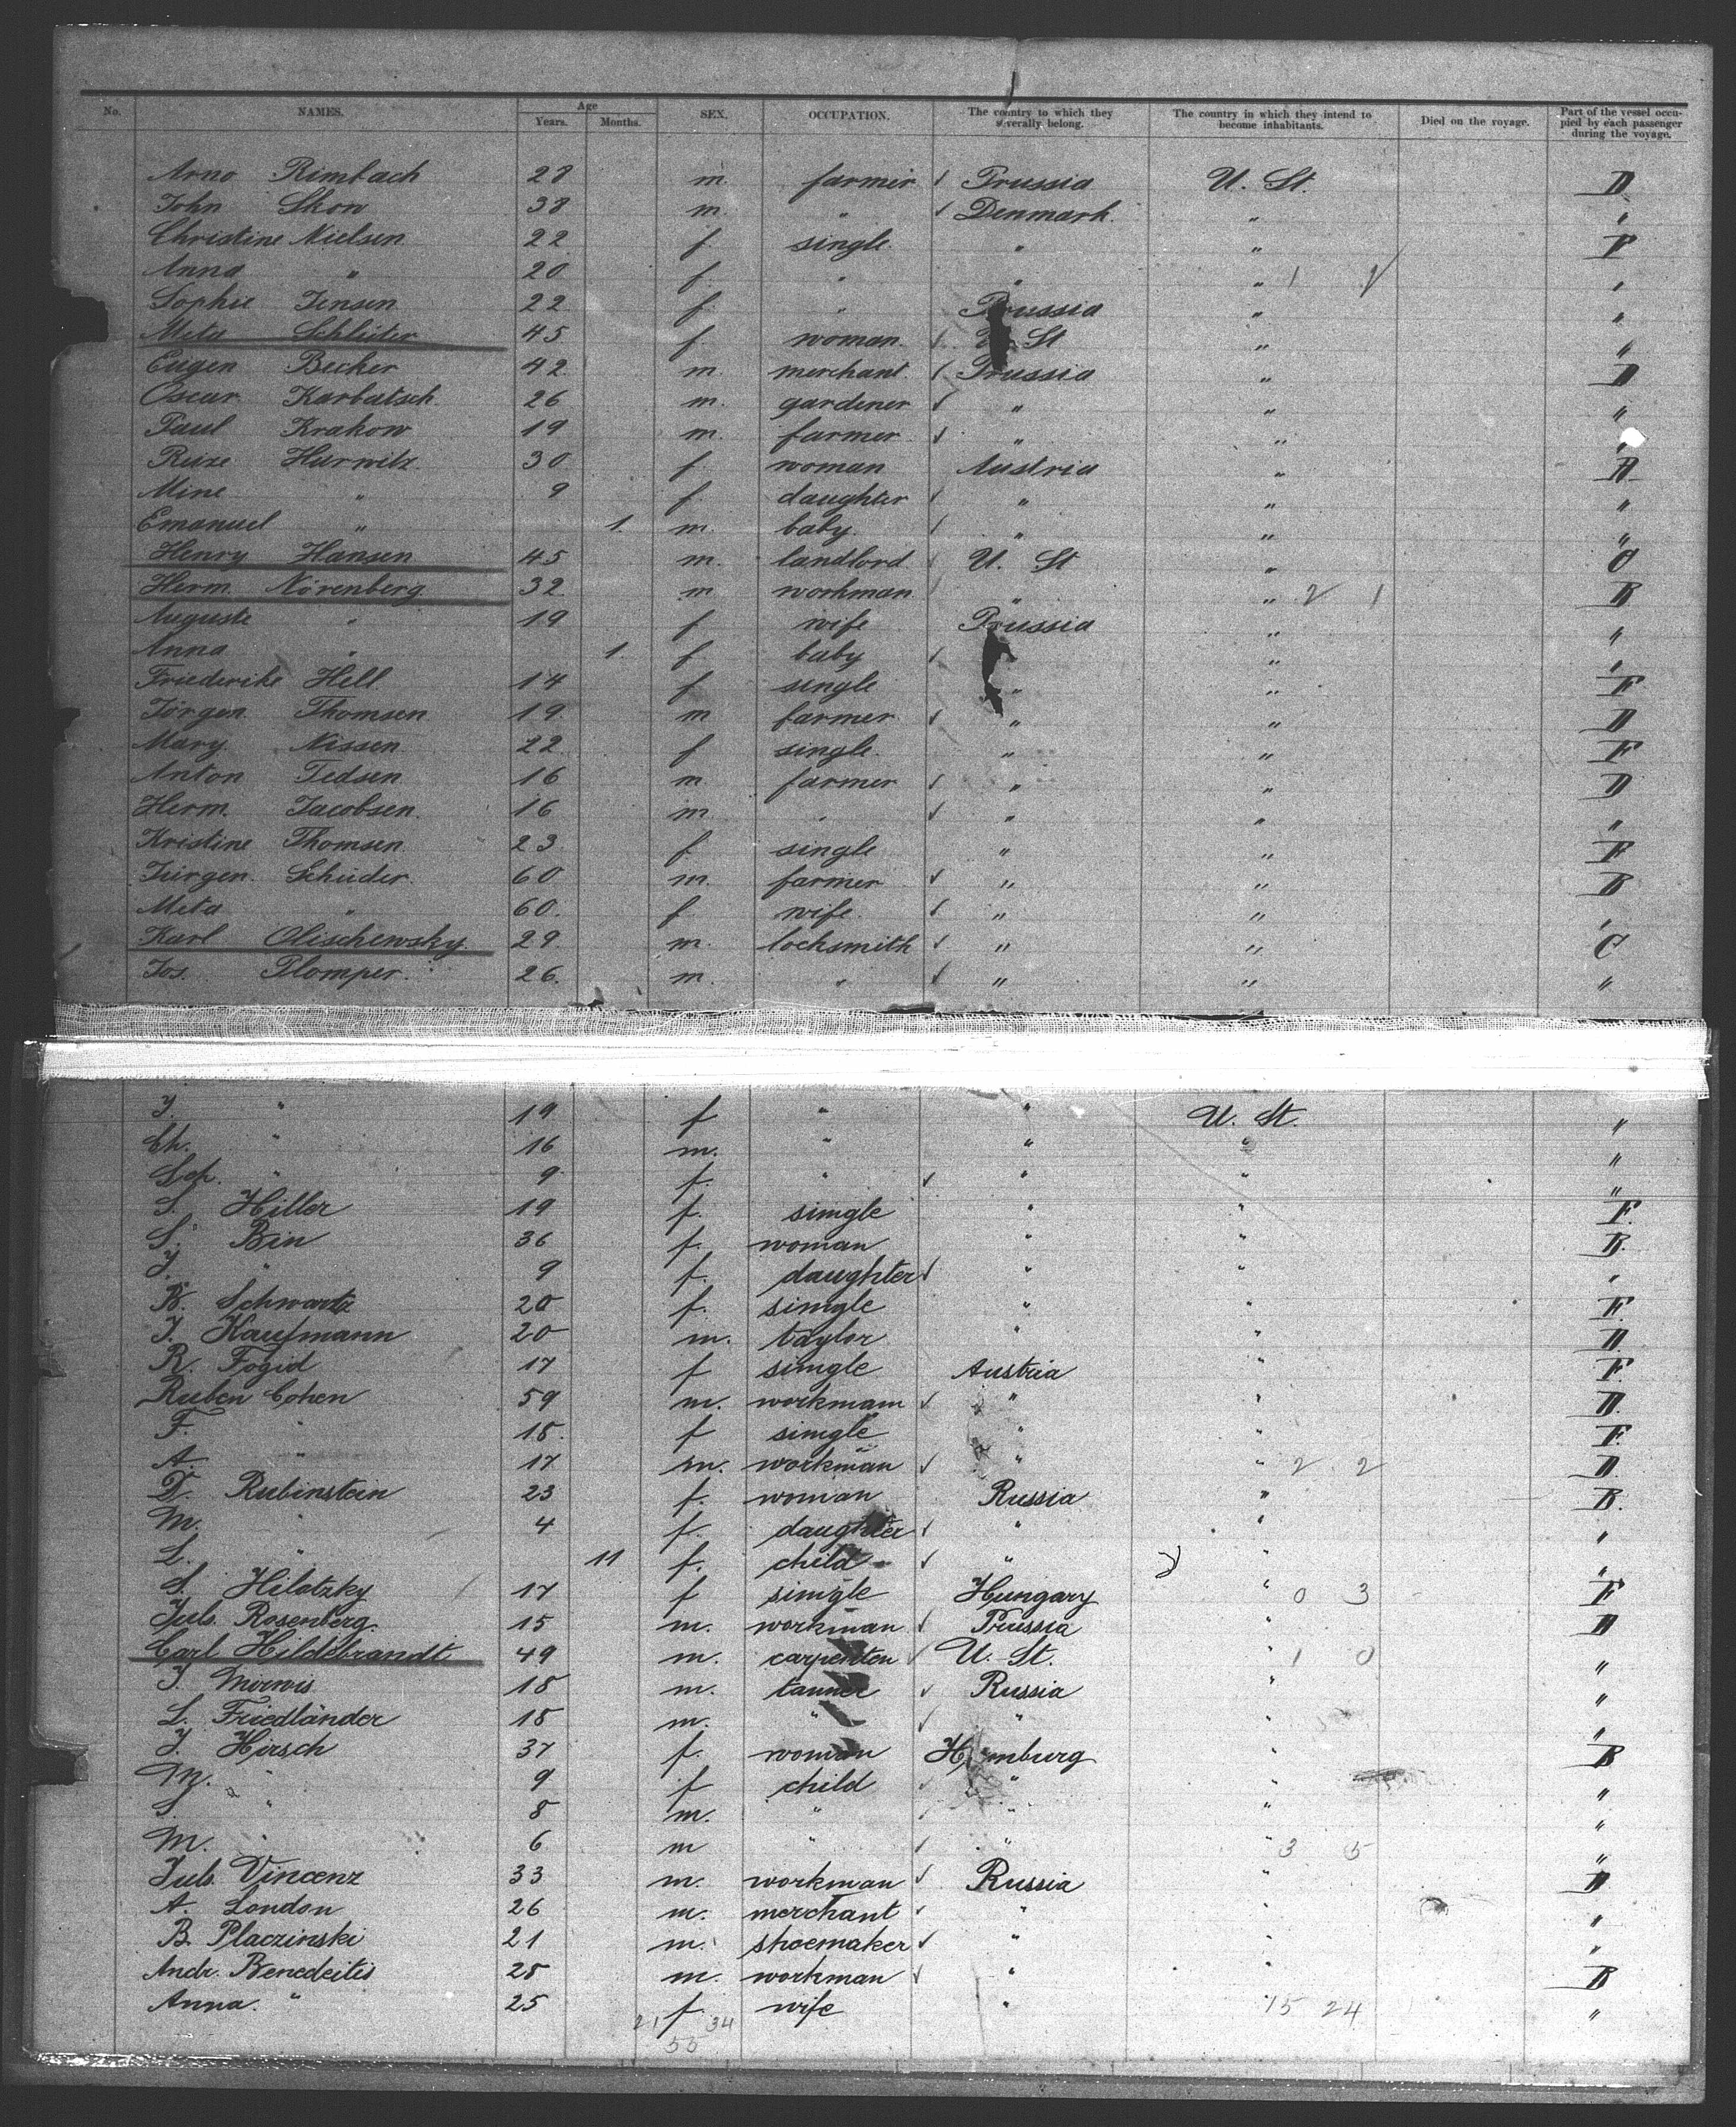 No. NAMES. Age Years. Months. SEX. OCCUPATION. The country to which they severally belong. The country in which they intend to become inhabitants. Died on the voyage. Part of the vessel occupied by each passenger during the voyage.
Arno Rimbach 28 m. farmer ✓ Prussia U. St. D
John Skow 38 m. " ✓ Denmark. " "
Christine Nielsen 22 f. single " " F
Anna " 20 f. " " " 1 "
Sophie Jensen 22 f. " Prussia " "
Meta Schlüter 45 f. woman. St " "
Eugen Becker 42 m. merchant. Prussia " D
Oscar Karbatsch 26 m. gardener ✓ " " "
Paul Krakow 19 m. farmer ✓ " " "
Reize Hurwitz 30 f. woman Austria "
Mine " 9 f. daughter ✓ " " "
Emanuel " 1. m. baby. ✓ " " "
Henry Hansen 45 m. landlord U. St "
Herm. Nörenberg 32 m workman " " 2 1 B
Auguste " 19 f wife Prussia " "
Anna " 1. f baby ✓ " "
Friederike Hell 14 f single " " F
Jörgen Thomsen 19 m farmer ✓ " " D
Mary Nissen 22 f single. " " F
Anton Tedsen 16 m. farmer ✓ " " D
Herm. Jacobsen. 16 m " ✓ " " "
Kristine Thomsen 23 f single " " F
Jürgen Schüder. 60 m. farmer ✓ " " B
Meta " 60. f. wife. ✓ " " "
Karl Olischewsky 29 m. locksmith ✓ " " C
Jos. Plomper. 26. m. " ✓ " " "
J. " 19 f " " U. St. "
Ch. " 16 m. " " " "
Sch. " 9 f. " ✓ " " "
S. Hiller 19 f. simgle " " F.
S. Bin 36 f. woman " " B.
J. " 9 f. daughter ✓ " " "
R. Schwartz 20 f. simgle " " F.
J. Kaufmann 20 m. taylor " " D.
R. Fogid 17 f simgle Austria " F.
Ruben Cohen 59 m. workmam ✓ " " D.
F. " 18. f simgle " " F.
A. " 17 m. workman ✓ " " 2 2 D.
D. Rubinstein 23 f. woman Russia " B.
M. " 4 f. daughter ✓ " " "
L. " 11 f. child ✓ " " "
S. Hilotzky 17 f simgle Hungary " 0 3 F
Juls. Rosenberg. 15 m. workman ✓ Prussia " D
Carl Hildebrandt 49 m. carpenten ✓ U. St. " 1 0 "
J. Mirwis 18 m. tanner ✓ Russia " "
L. Friedländer 18 m. " ✓ " " "
J. Hirsch 37 f. woman Hamburg " B
M. " 9 f child ✓ " " "
S. " 8 m. " ✓ " " "
M. " 6 m " ✓ " " 3 5 "
Juls. Vincenz 33 m. workman ✓ Russia " D
A. London 26 m. merchant ✓ " " "
B. Placzinski 21 m. shoemaker ✓ " " "
Andr. Benedeitis 28 m. workman ✓ " " B
Anna. " 25 f. wife " 15 24 "
21 34
55